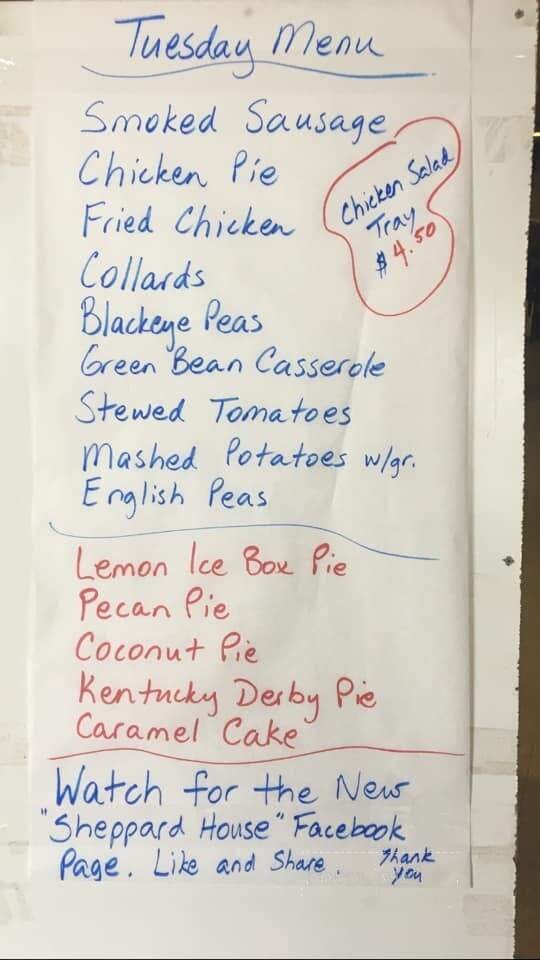 Tuesday Menu
Smoked Sausage
Chicken Pie
Fried Chicken
Collards
Blackeye Peas
Green Bean Casserole
Stewed Tomatoes
Mashed Potatoes w/gr.
English Peas
Chicken Salad
Tray
$ 4.50
Lemon Ice Box Pie
Pecan Pie
Coconut Pie
Kentucky Derby Pie
Caramel Cake
Watch for the New
"Sheppard House" Facebook
Page. Like and Share.
Thank
you